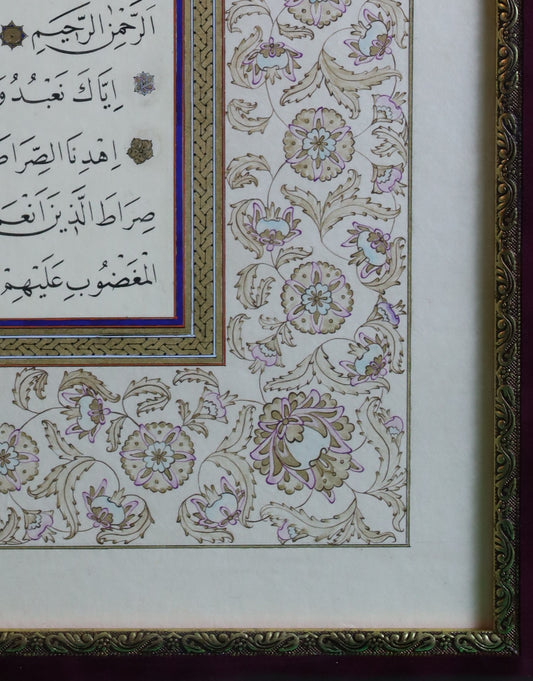 اَلرَّحْمٰنِ الرَّحٖيمِ
اِيَّاكَ نَعْبُدُ وَ
اِهْدِنَا الصِّرَاطَ
صِرَاطَ الَّذٖينَ اَنْعَمْ
الْمَغْضُوبِ عَلَيْهِمْ